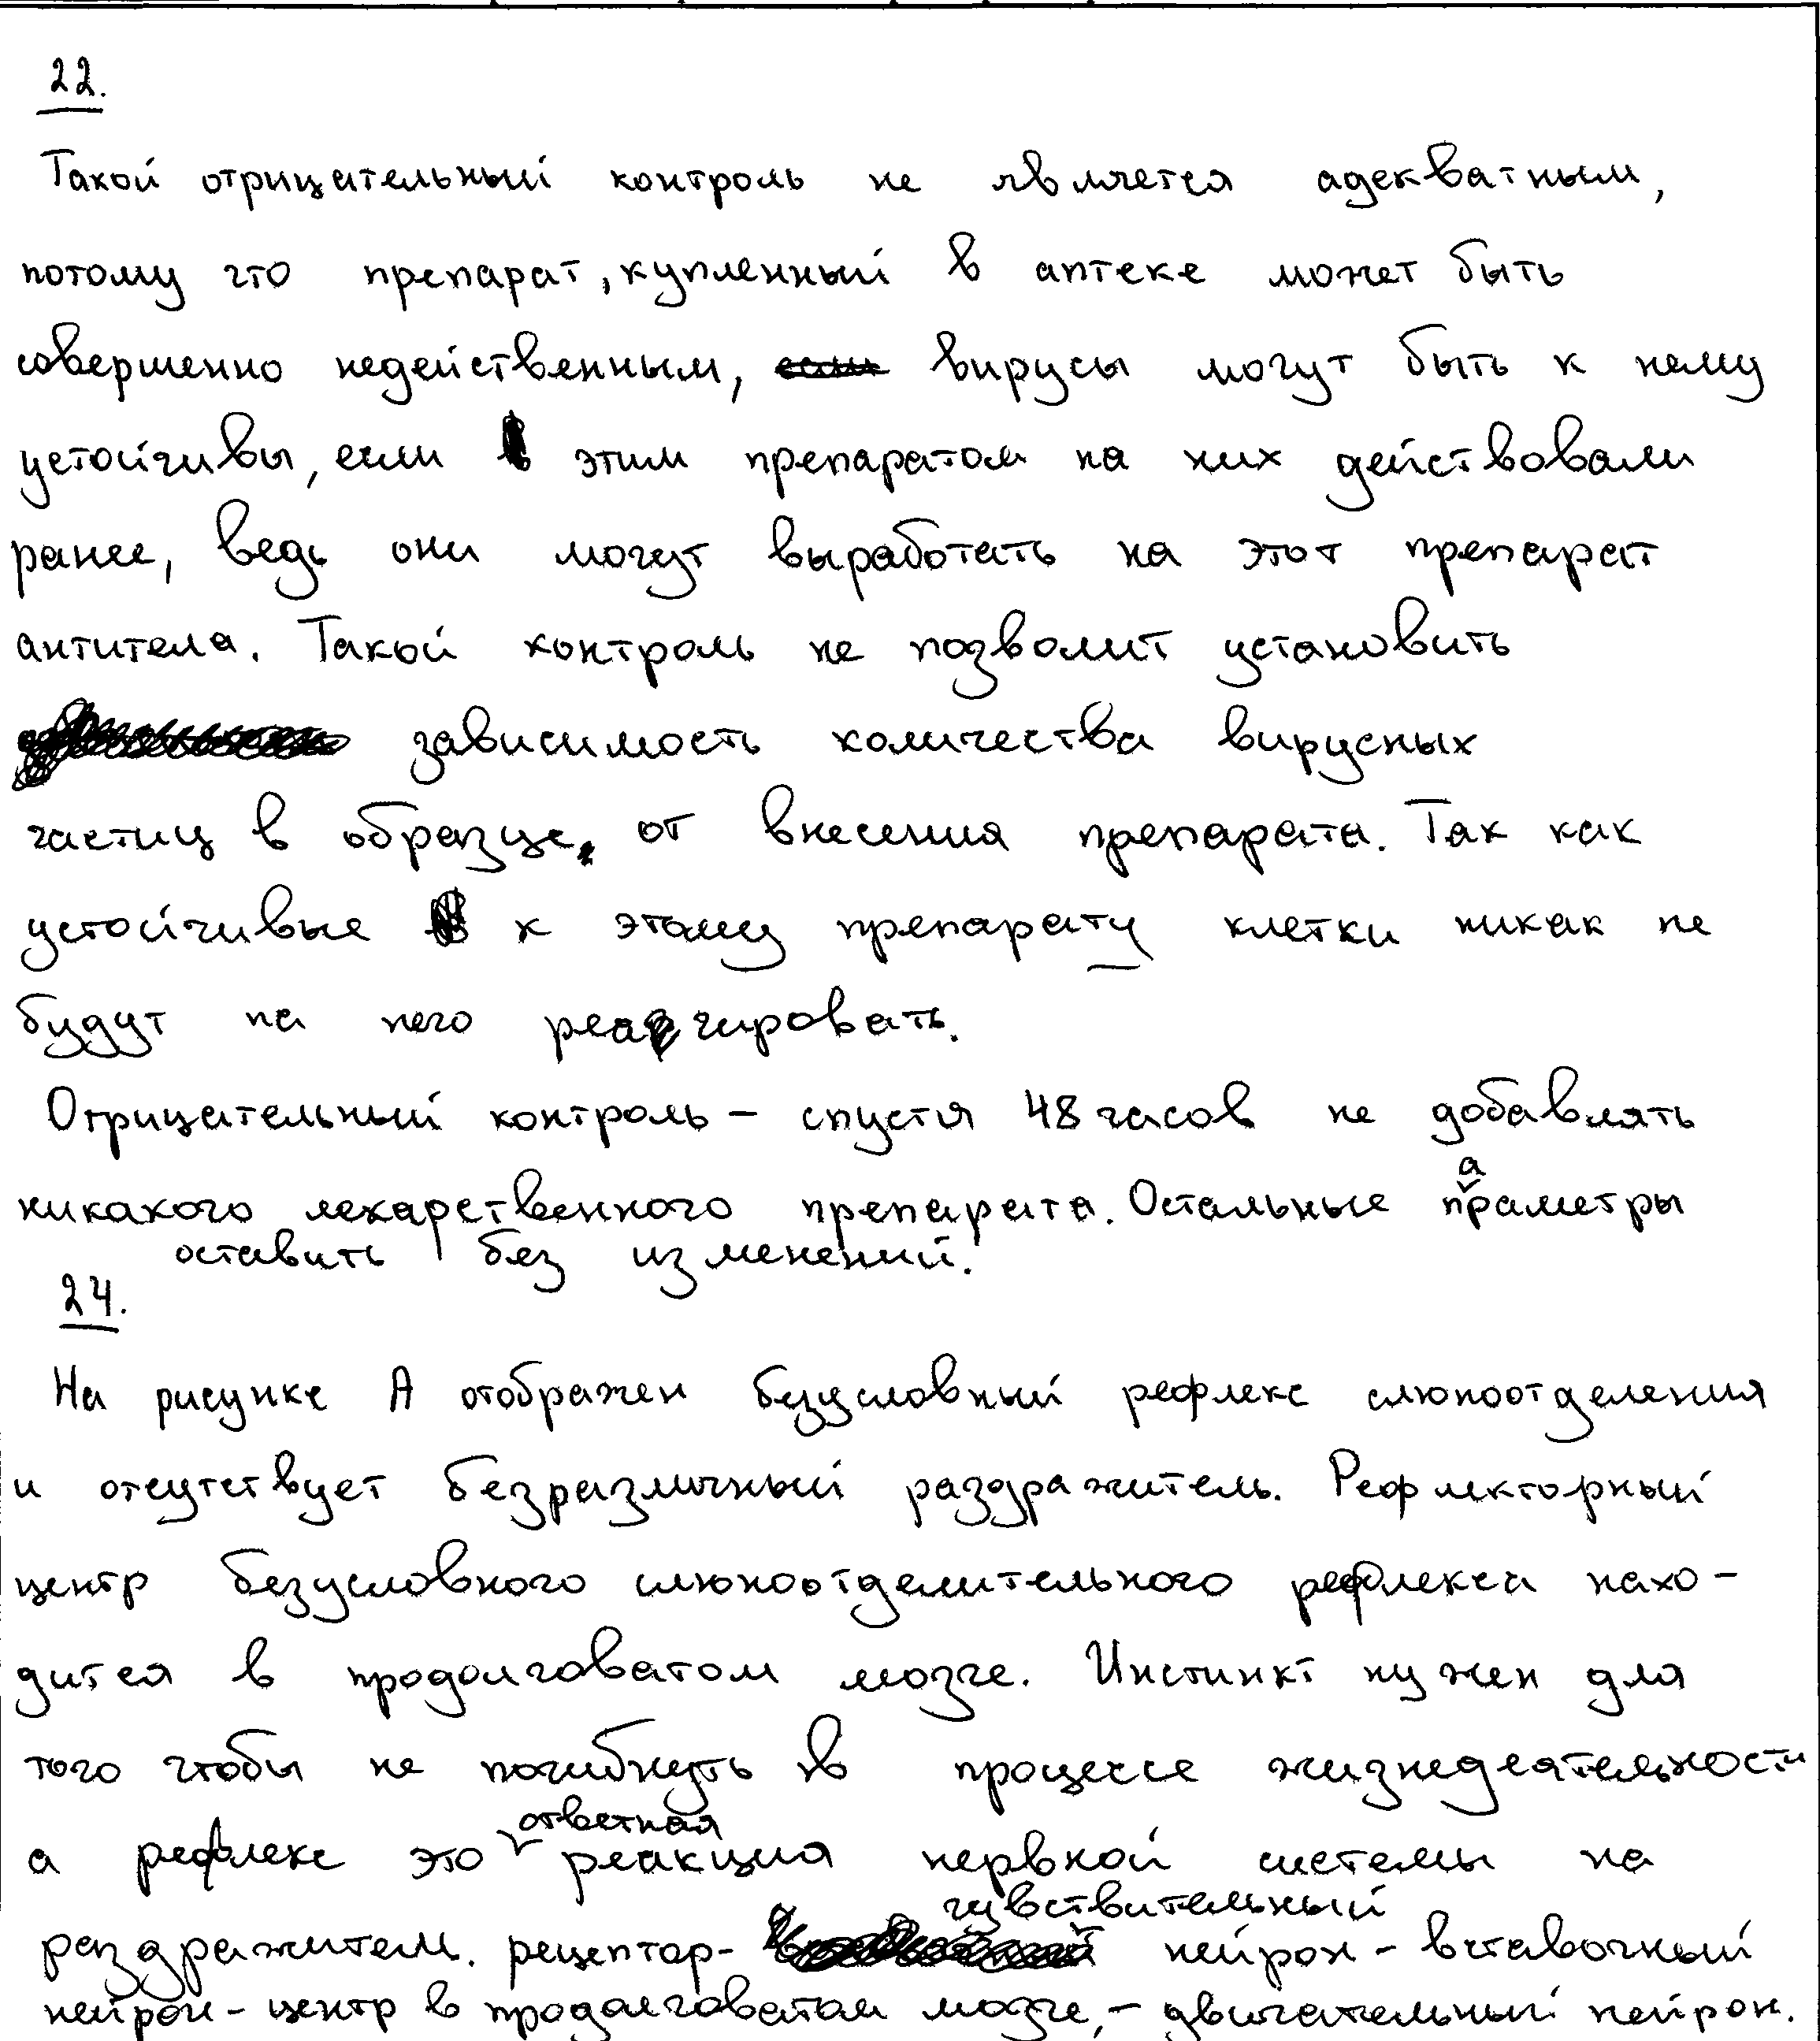 22.
Такой отрицательный контроль не является адекватным,
потому что препарат, купленный в аптеке может быть
совершенно недейственным, вирусы могут быть к нему
устойчивы, если этим препаратом на них действовали
ранее, ведь они могут выработать на этот препарат
антитела. Такой контроль не позволит установить
зависимость количества вирусных
частиц в образце от внесения препарата. Так как
устойчивые к этому препарату клетки никак не
будут на него реагировать.
Отрицательный контроль – спустя 48 часов не добавлять
никакого лекарственного препарата. Остальные параметры
оставить без изменений.
24.
На рисунке А отображен безусловный рефлекс слюноотделения
и отсутствует безразличный раздражитель. Рефлекторный
центр безусловного слюноотделительного рефлекса нахо-
дится в продолговатом мозге. Инстинкт нужен для
того чтобы не погибнуть в процессе жизнедеятельности
а рефлекс это ответная реакция нервной системы на
раздражители. рецептор- чувствительный нейрон - вставочный
нейрон - центр в продолговатом мозге, - двигательный нейрон.